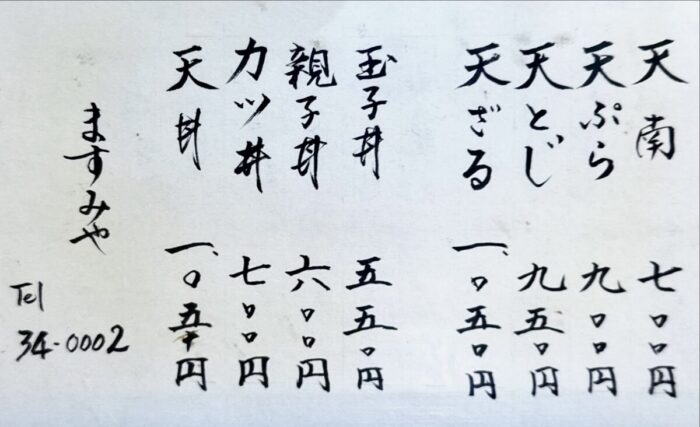 天南 七〇〇円
天ぷら 九〇〇円
天とじ 九五〇円
天ざる 一、〇五〇円
玉子丼 五五〇円
親子丼 六〇〇円
カツ丼 七〇〇円
天丼 一、〇五〇円
ますみや
Tel
34-0002